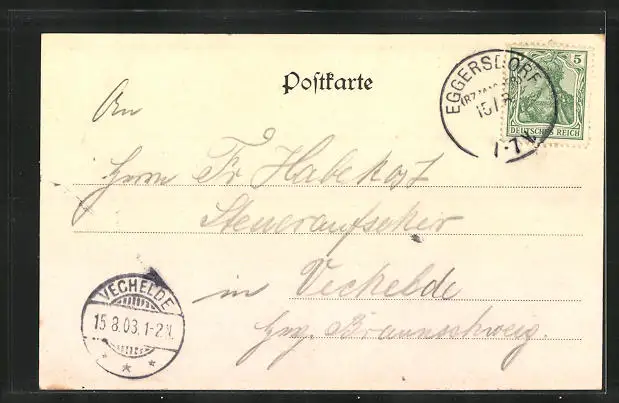 Postkarte
EGGERSDORF
15/8
1-7 V.
5
DEUTSCHES REICH
An
Herrn Fr. Habekost
Steueraufseher
in Vechelde
Hzg. Braunschweig.
VECHELDE
15.8.03. 1-2 N.